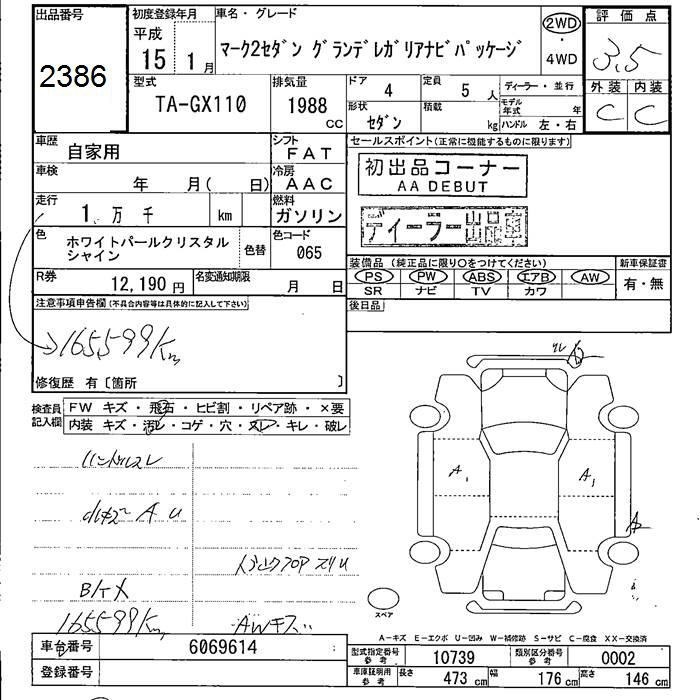 出品番号
2386
初度登録年月
平成
15 年 1 月
車名・グレード
マーク2セダン グランデレガリアナビパッケージ
2WD
・
4WD
評価点
3,5
外装 内装
C C
型式
TA-GX110
排気量
1988 CC
ドア
4
定員
5 人
形状
セダン
積載
kg
ディーラー・並行
モデル年式 年
ハンドル 左・右
車歴
自家用
シフト
FAT
車検
年 月( 日)
冷房
AAC
走行
1 万 千 km
燃料
ガソリン
色
ホワイトパールクリスタルシャイン
色替
色コード
065
R券
12,190 円
名変通知期限
月 日
セールスポイント(正常に機能するものに限ります)
初出品コーナー
AA DEBUT
ディーラー出品車
装備品 (純正品に限り○をつけてください)
PS PW ABS エアB AW
SR ナビ TV カワ
新車保証書
有・無
後日品
注意事項申告欄(不具合内容等は具体的に記入して下さい)
165,599Km
修復歴 有〔箇所 〕
検査員記入欄
FW キズ・飛石・ヒビ割・リペア跡・×要
内装 キズ・汚レ・コゲ・穴・スレ・キレ・破レ
ハンドルスレ
A U
165599Km
AWキズ
A1
A1
A2
スペア
A-キズ E-エクボ U-凹み W-補修跡 S-サビ C-腐食 XX-交換済
車台番号
6069614
登録番号
型式指定番号 参考
10739
類別区分番号 参考
0002
車庫証明用 参考
長さ 473 cm
幅 176 cm
高さ 146 cm